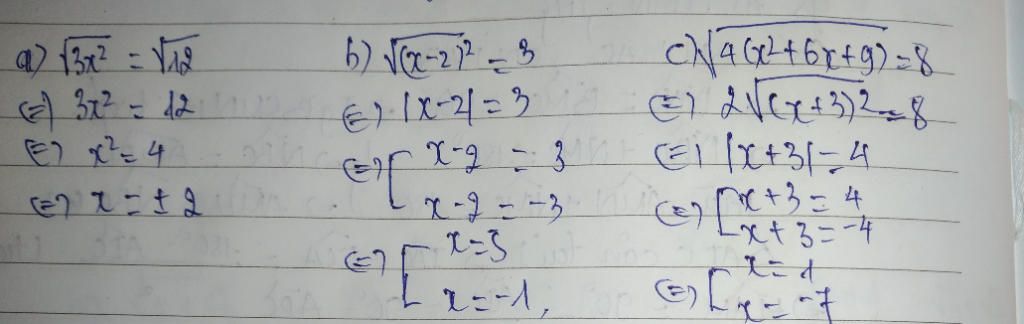 a) √3x² = √12
⇔ 3x² = 12
⇔ x² = 4
⇔ x = ± 2
b) √(x-2)² = 3
⇔ |x-2| = 3
⇔ [ x-2 = 3
x-2 = -3
⇔ [ x=5
x=-1,
c) √4(x²+6x+9) = 8
⇔ 2√(x+3)² = 8
⇔ |x+3| = 4
⇔ [ x+3 = 4
x+3 = -4
⇔ [ x=1
x=-7